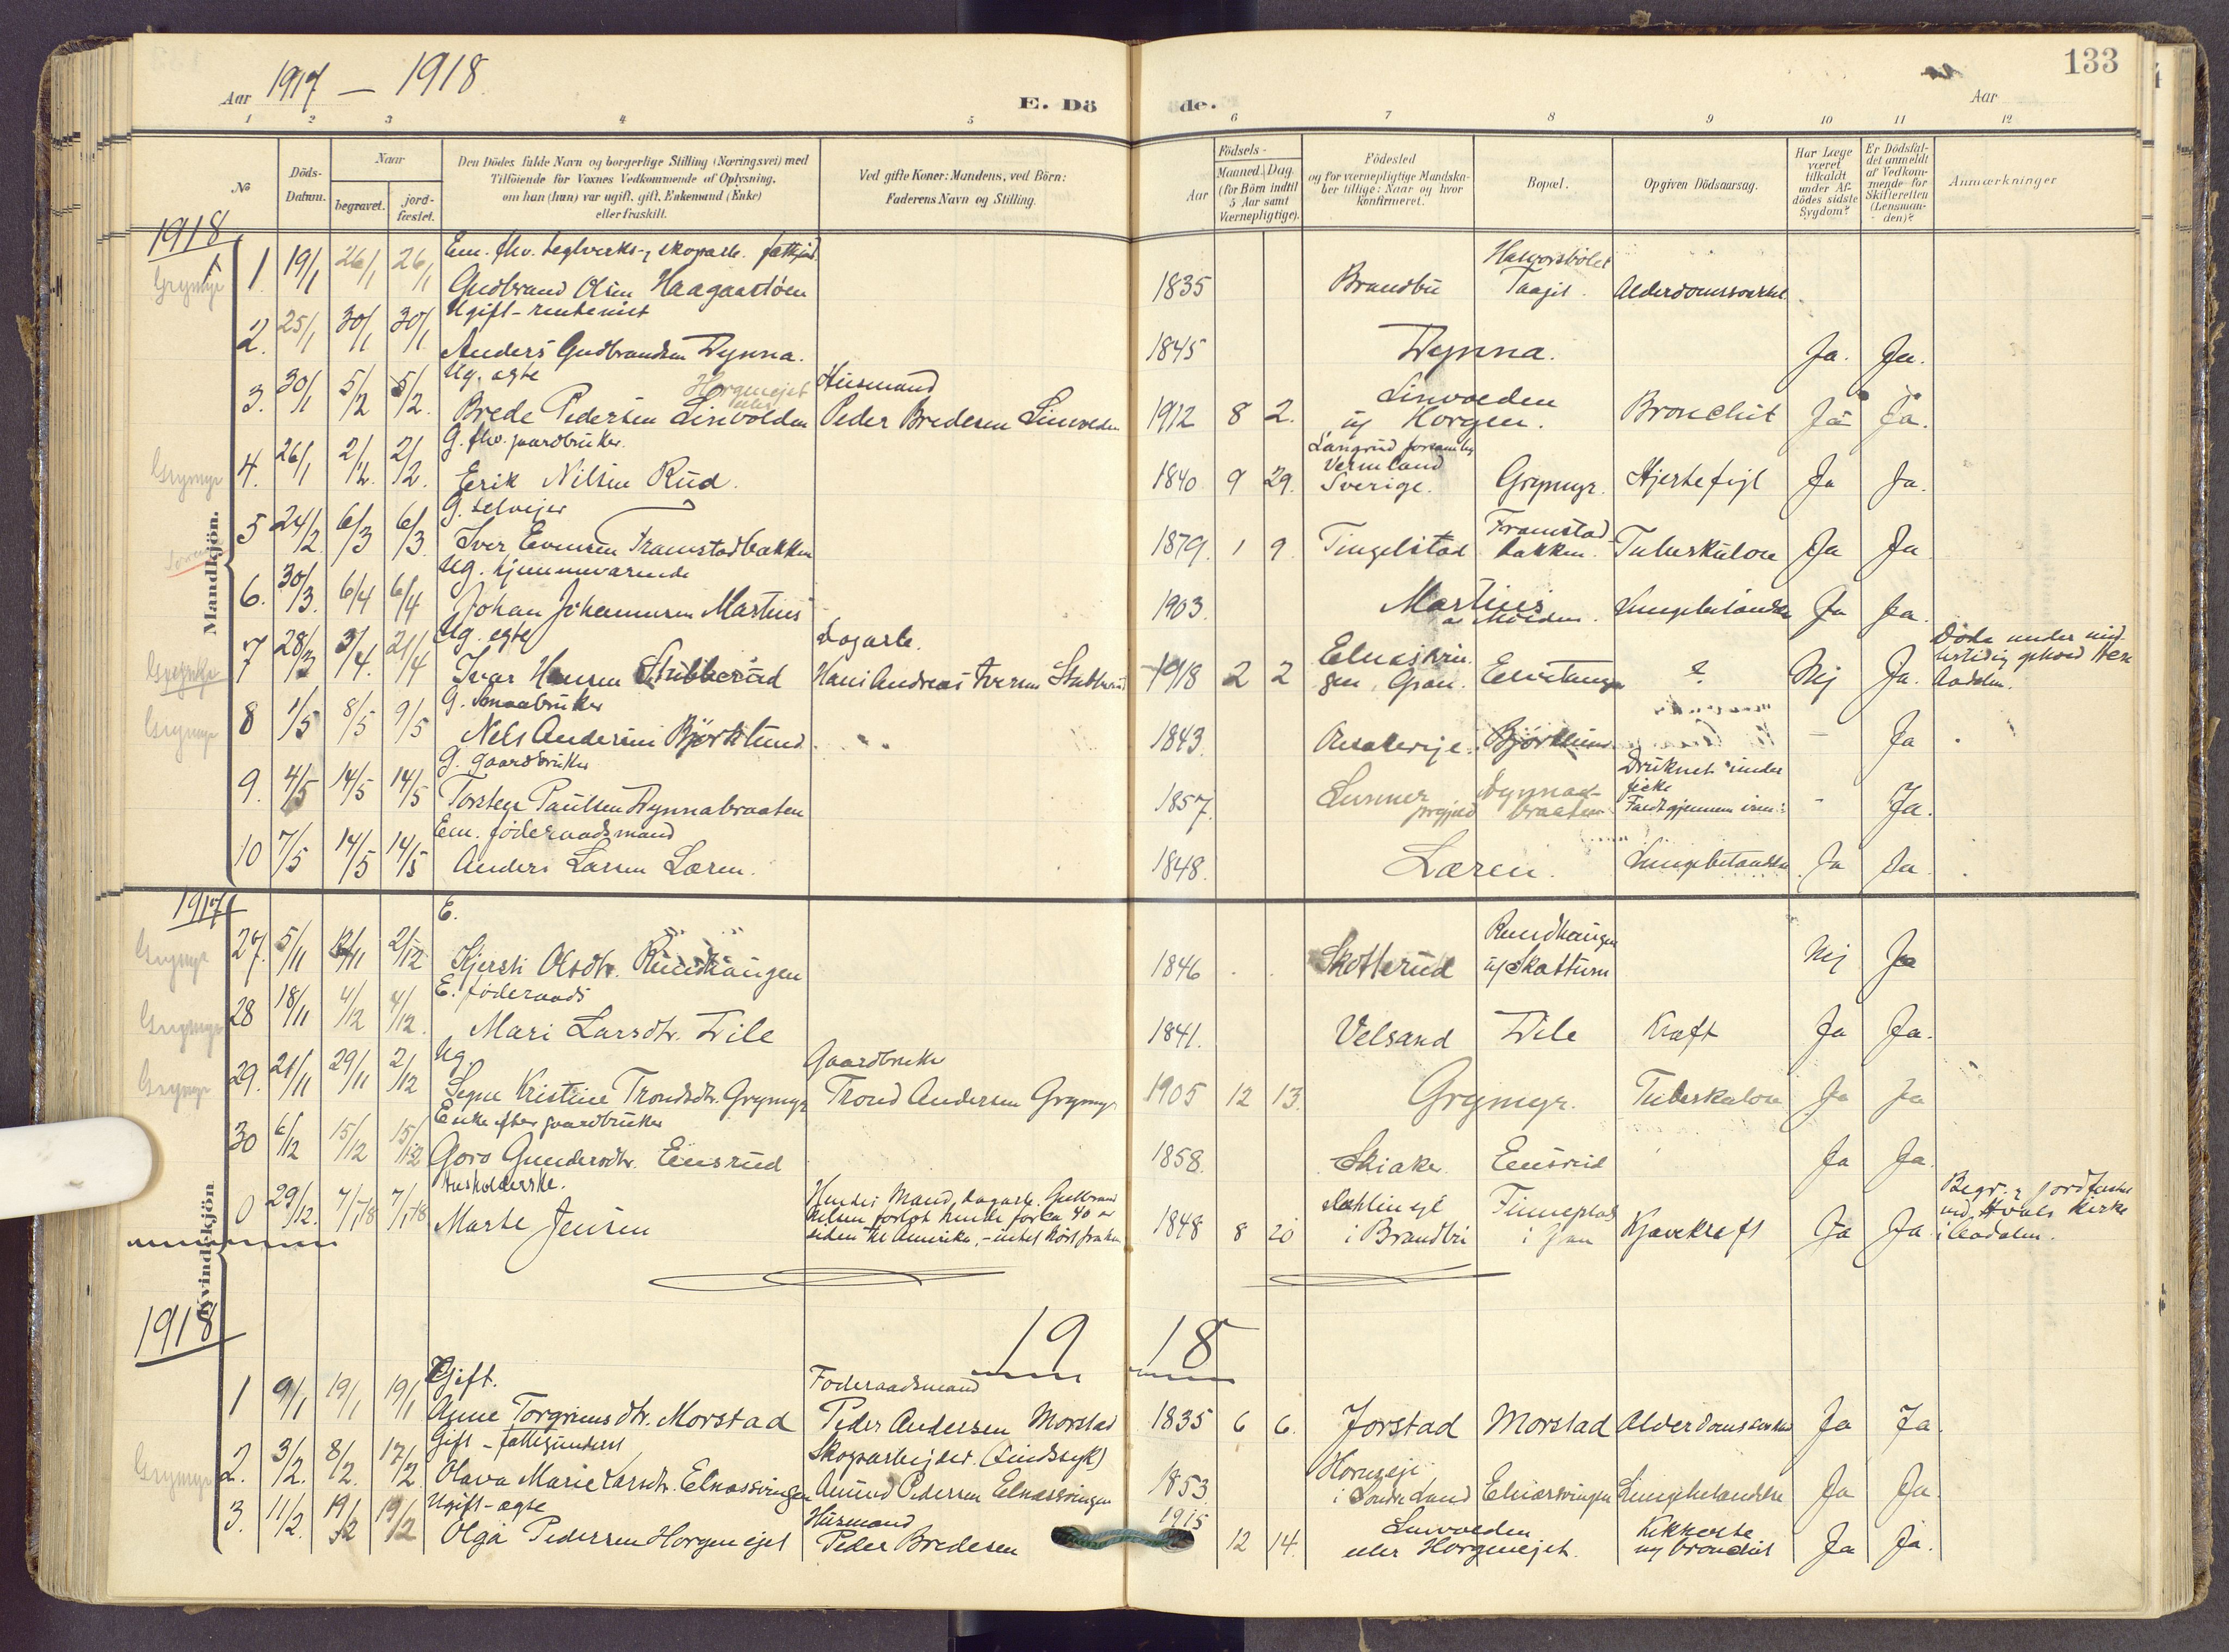 133
Aar 1917 – 1918. E. Döde. Aar
1 2 3 4 5 6 7 8 9 10 11 12
No
Döds-Datum.
Naar
begravet.
jord-fæstet.
Den Dödes fulde Navn og borgerlige Stilling (Næringsvei) med
Tilföiende for Voxnes Vedkommende af Oplysning,
om han (hun) var ugift, gift, Enkemand (Enke)
eller fraskilt.
Ved gifte Koner: Mandens, ved Börn:
Faderens Navn og Stilling.
Födsels-
Aar
Maaned. Dag.
(for Börn indtil
5 Aar samt
Værnepligtige).
Födested
og for værnepligtige Mandska-
ber tillige: Naar og hvor
konfirmeret.
Bopæl.
Opgiven Dödsaarsag.
Har Læge
været
tilkaldt
under Af-
dödes sidste
Sygdom?
Er Dödsfal-
det anmeldt
af Vedkom-
mende for
Skifteretten
(Lensman-
den)?
Anmærkninger
1918
Mandkjön.
Grymyr 1 19/1 26/1 26/1 Em. fhv. teglverks-, skogarb. fattigund.
Gudbrand Olsen Haagaarstøen 1835 Brandbu Taagit. Alderdomssvækk.
2. 25/1 30/1 30/1 Ugift - rentenist
Anders Gudbrandsen Dynna. 1845 Dynna. Ja. Ja.
3. 30/1 5/2 5/2. Ug. egte Husmand
Brede Pedersen Linvolden Peder Bredesen Linvolden 1912 8 2. Linvoeden
ug Horgen. Bronchit Ja Ja.
Grymyr 4. 26/1 2/2. 2/2. G. fhv. gaardbruker.
Erik Nilsen Rud. 1840 9 29. Vermland
Sverige. Grymyr. Hjertefejl Ja Ja.
5 24/2 6/3 6/3. G. selvejer
Iver Evensen Framstadbakken 1879. 1 9. Tingelstad Framstad
bakken. Tuberkulose Ja Ja
6. 30/3. 6/4 6/4 Ug. hjemmeværende
Johan Johannesen Martins 1903. Martins Lungebetændelse Ja Ja.
7 28/3 3/4. 21/4 Ug. egte Dagarb.
Ivar Hansen Stubberud Hans Andreas Iversen Stubberud 1918 2 2 Elnæsvin
gen, Gran. ? Nej Ja. Døde under
Aadalen.
Grymyr 8 1/5 8/5 9/5 G. Smaabruker
Nels Andersen Björklund. 1843. Björklund – Ja
9. 4/5 14/5 14/5 G. gaardbruker
Torsten Paulsen Dynnabraaten 1857. Lunner prgjeld Dynna-
braaten Druknet under
fiske
Faldt gjennem isen. - Ja.
10 7/5 14/5 14/5 Em. føderaadsmand
Anders Larsen Læren. 1848. Læren. Lungebetændelse Ja Ja
1917
Kvindekjön
Grymyr 27. 5/11 12/11 2/12 E.
Kjersti Olsdtr. Rundhaugen 1846 Skotterud Rundhaugen
u/ Skattum Nej Ja
Grymyr 28 18/11 4/12 4/12. E. føderaads
Mari Larsdtr. Dile 1841. Velsand Dile Kraft Ja Ja.
Grymyr 29. 21/11 29/11 2/12 Ug. Gaardbruker
Signe Kristine Trondsdtr. Grymyr Trond Andersen Grymyr 1905 12 13. Grymyr. Tuberkulose Ja Ja
30 6/12 15/12 15/12 Enke efter gaardbruker
Goro Gundersdtr. Eensrud 1858. Skiaker Eensrud Ja Ja.
0 29/12. 7/1-18 7/1-18 Husholderske.
Marte Jensen Hendes Mand, dagarb. Gulbrand
Nelsen forlot hende for ca 40 år
siden til Amerika, - intet hørt fra ham 1848 8 20
i Brandbu i Gran Kjøvekraft Ja Ja Begr. & jordfæstet
ved Hvals kirke
i Aadalen.
1918
19 18
1 9/1 19/1 19/1 Gift. Føderaadsmand
Agne Torgrimsdtr. Morstad Peder Andersen Morstad 1835 6 6. Jorstad Morstad Alderdomssvækk. Ja Ja.
Grymyr 2. 3/2. 8/2. 17/2 Gift - fattigunderst Skogarbejder. (Sindssyk)
Olava Marie Larsdtr. Elnæsvingen Amund Pedersen Elnæsvingen 1853
i Søndre Land Elnæsvingen Lungebetændelse Ja Ja.
3. 11/2. 19/2 19/2 Ugift - egte Husmand
Olga Pedersen Horgenejet Peder Bredesen 1915 12 14. Linvoeden
eller Horgenejet. Kikhoste
og bronchit Ja Ja.